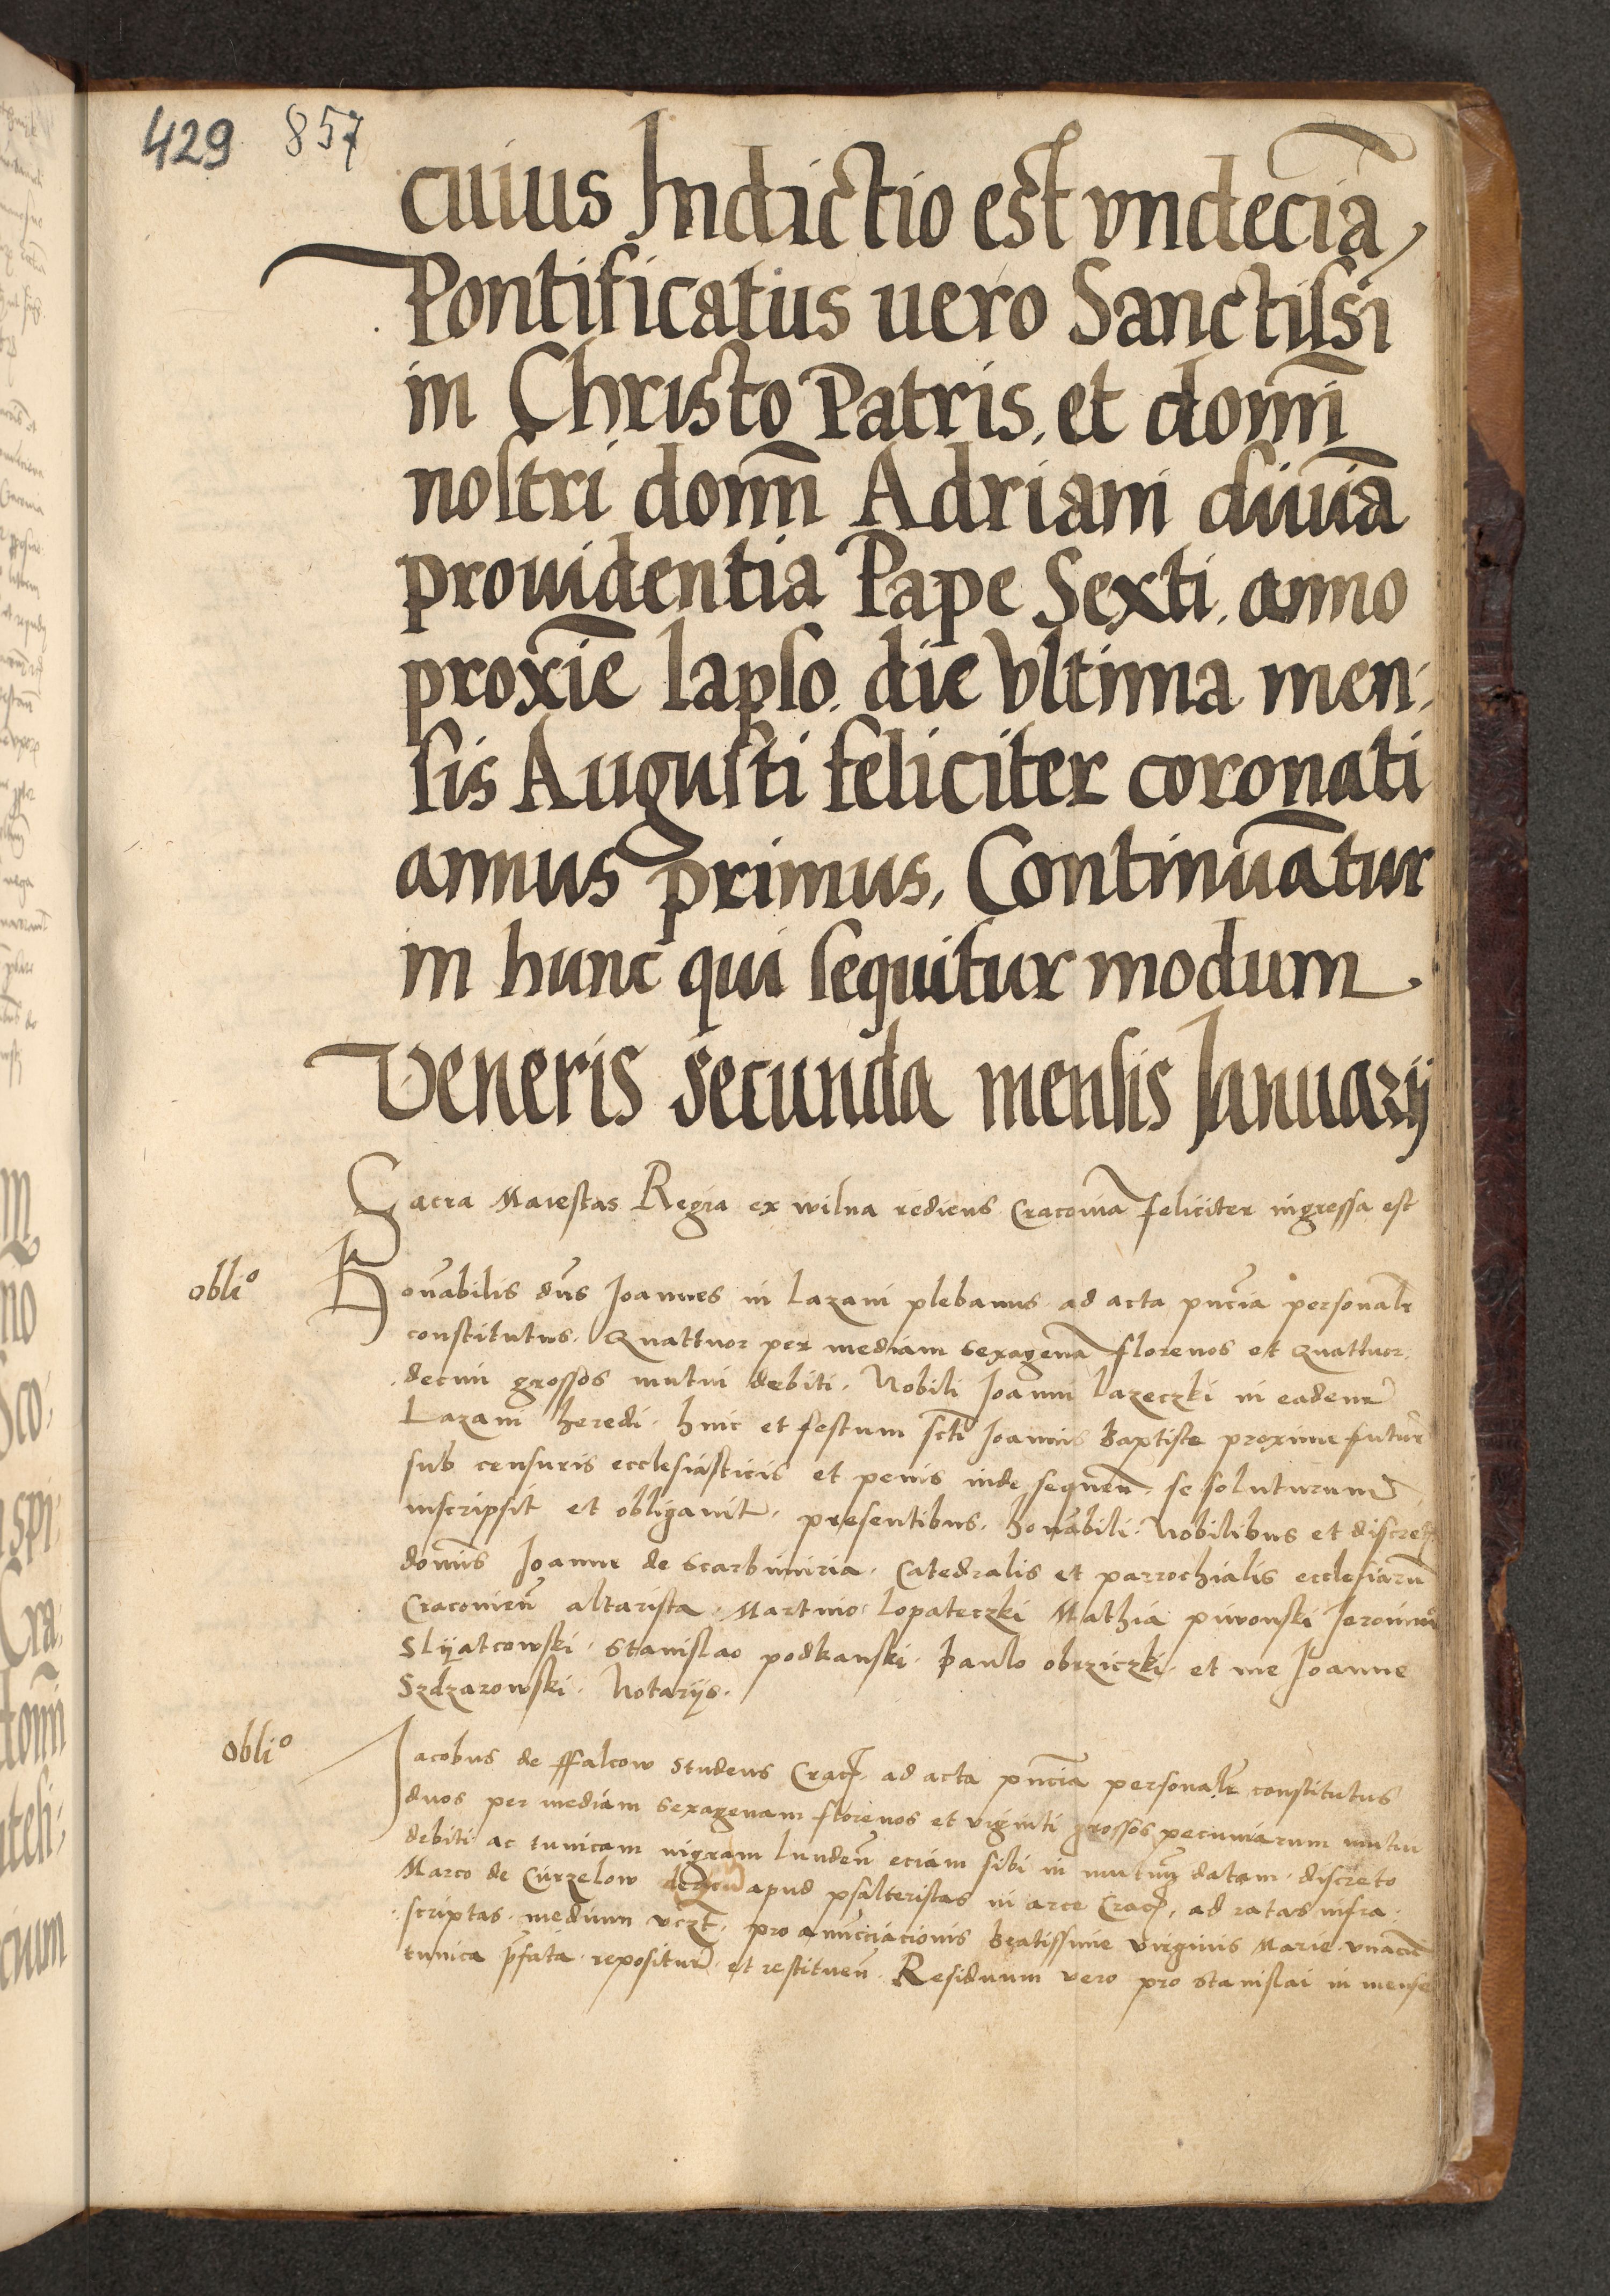 429 857
cuius Indictio est vndecīa,
Pontificatus uero Sanctissi
in Christo Patris, et domī
nostri domī Adriani diuīa
prouidentia Pape Sexti, anno
proxīe lapso. die vltima men:
sis Augusti feliciter coronati
annus primus, Continuātur
in hunc qui sequitur modum.
Veneris secunda mensis Ianuarij
Sacra Maiestas Regia ex wilna rediens Cracouiā feliciter ingressa est
obli°
Honābilis dns̄ Joannes in Lazani plebanus ad acta pn̄cia personalr
constitutus. Quattuor per mediam sexagenā florenos et Quattuor
decim grossos mutui debiti. Nobili Joanni Lazeczki in eadem
Lazani heredi. hinc et festum sct̄i Joannis Baptiste proxime futur̄
sub censuris ecclesiasticis et penis inde sequen̄. se soluturum
inscripsit et obligauit. presentibus. honābili. Nobilibus et discret
domīs Joanne de Scarbimiria. Catedralis et parrochialis ecclesiarū
Cracouien̄ altarista. Martino Lopateczki Mathia piwonski Jeronimo
Slyatcowski. Stanislao podkanski. Paulo obrziczki. et me Joanne
Szdzarowski. Notarijs.
obli°
Jacobus de ffalcow Studens Crac. ad acta pn̄cia personalr constitutus
duos per mediam sexagenam florenos et viginti grossos pecuniarum mutui
debiti ac tunicam nigram Lunden̄ eciam sibi in mutuū datam. discreto
Marco de Curzelow apud psalteristas in arce Crac. ad ratas infra.
scriptas. medium vczt. pro anūcciacionis Beatissime virginis Marie vnacū
tunica p̄fata repositur̄ et restituen̄. Residuum vero pro Stanislai in mense